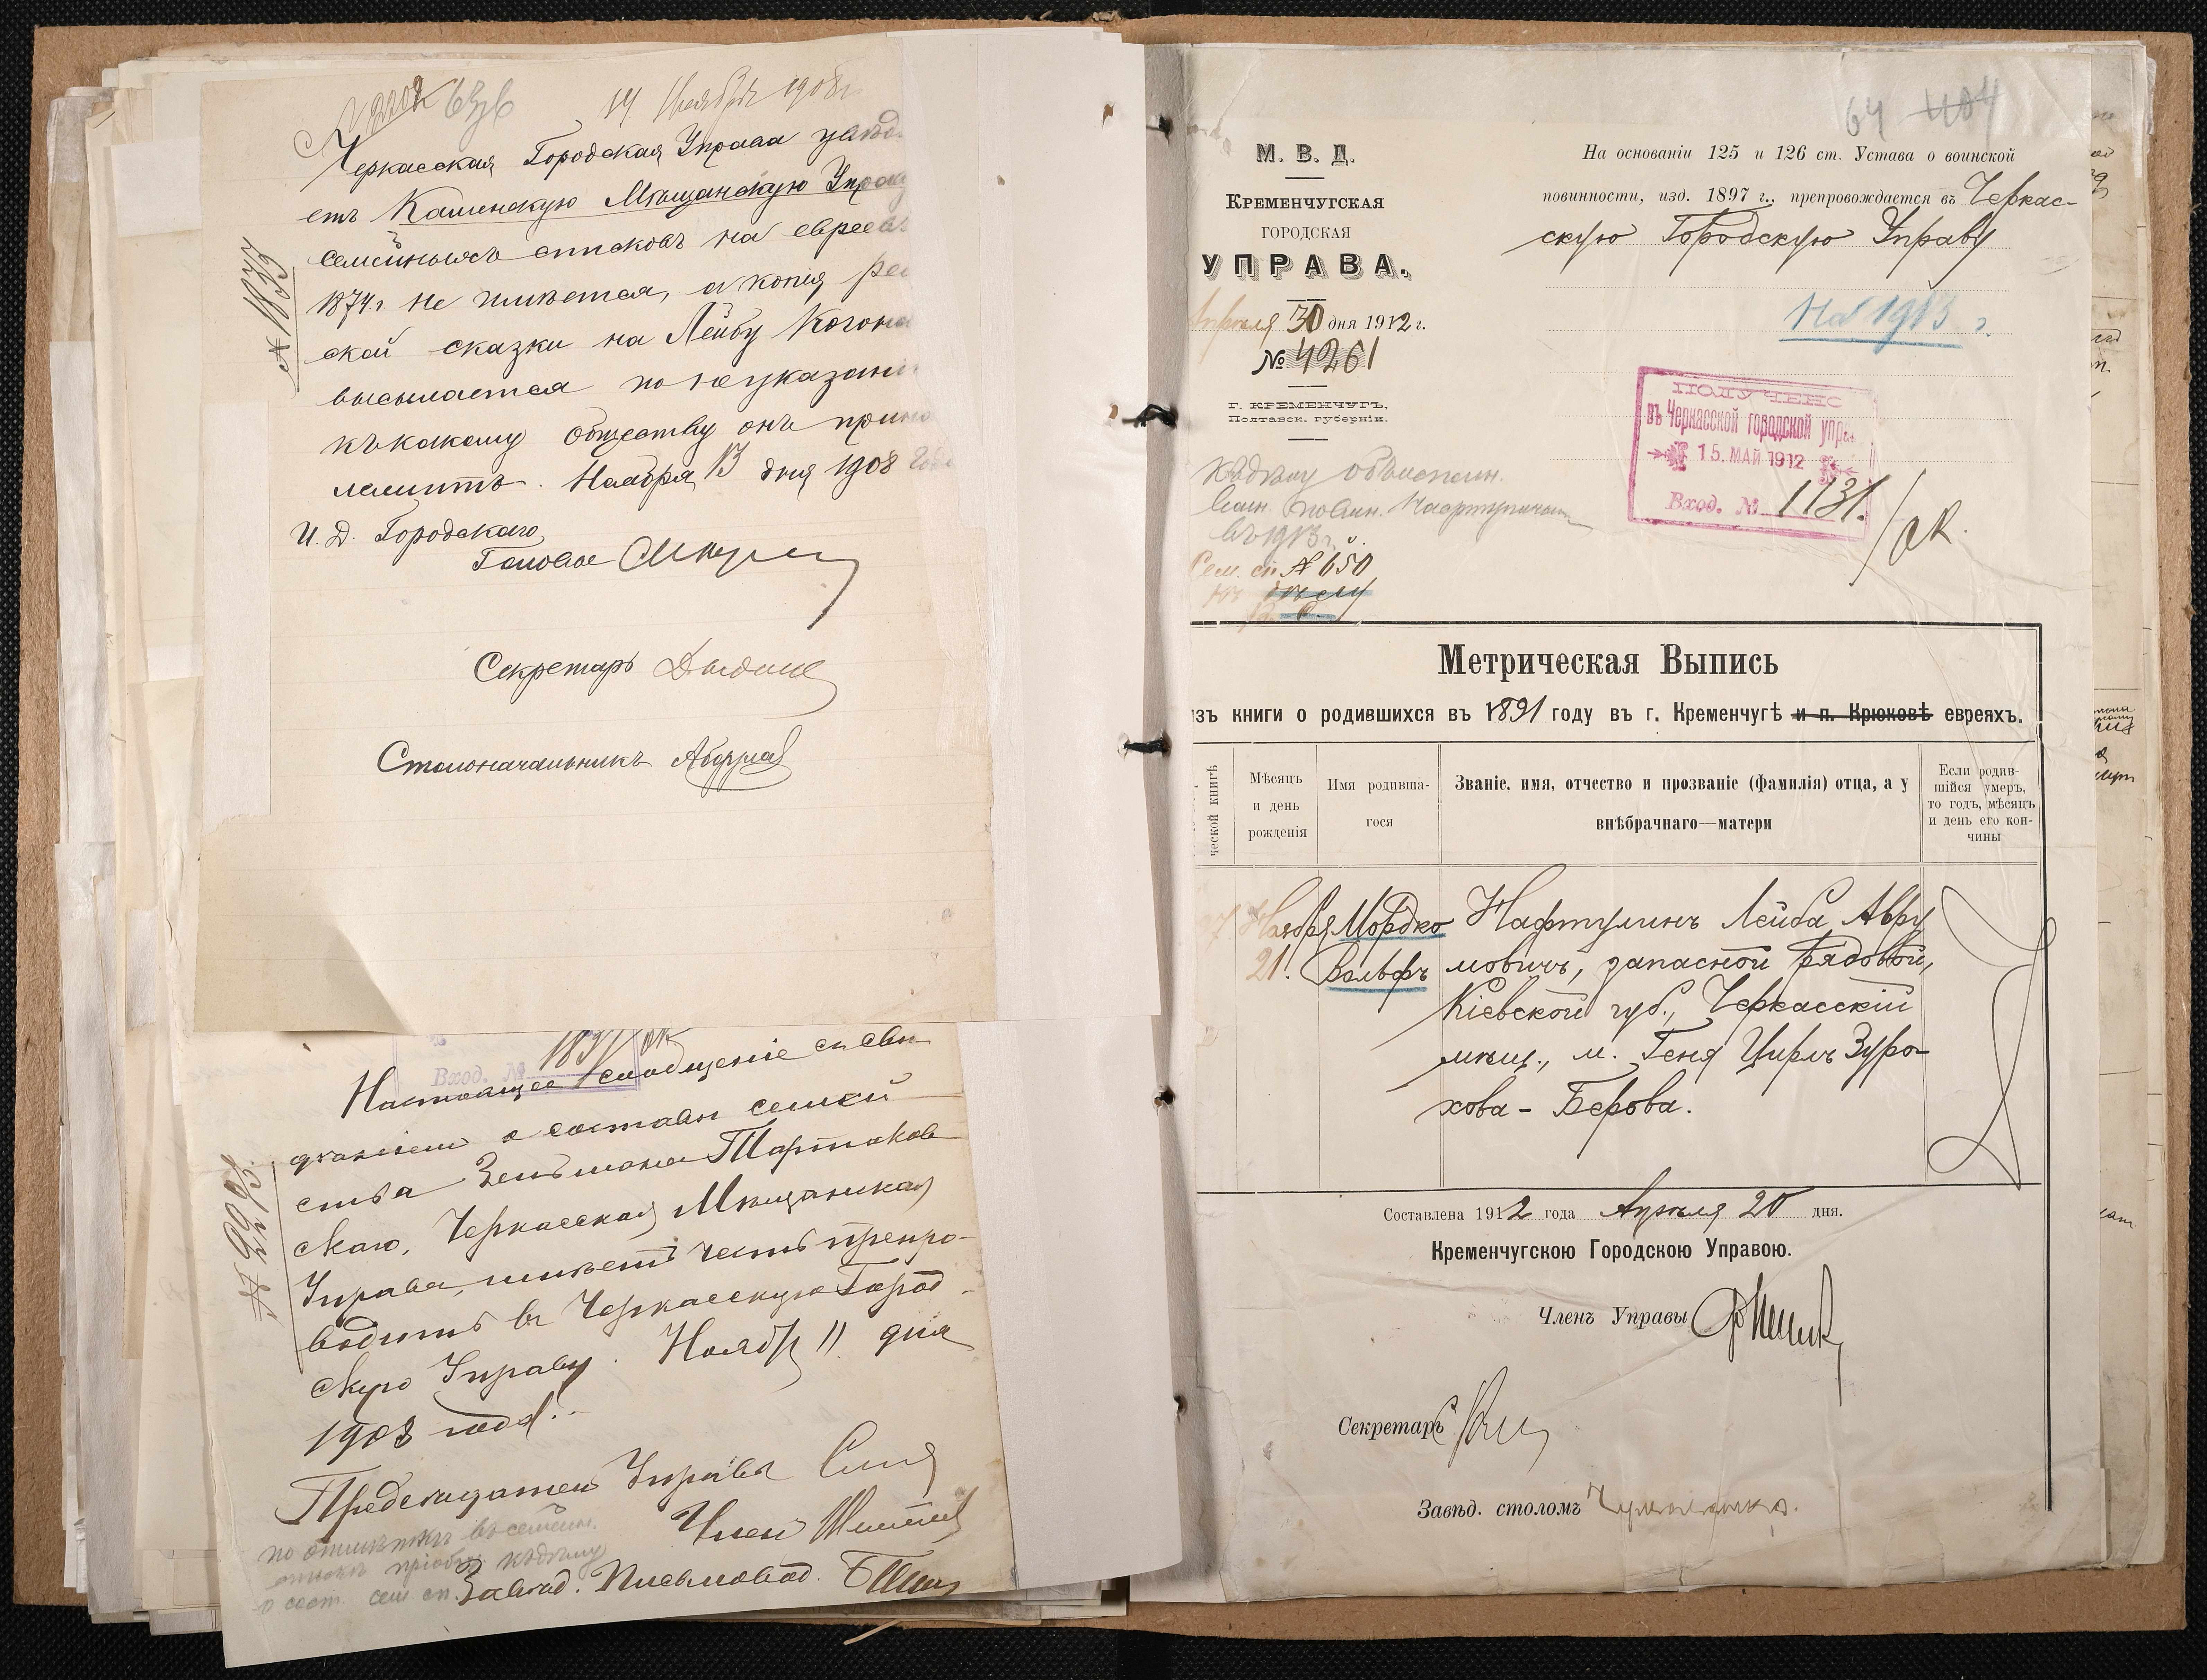 14 Ноября 1908 г.
Черкасская Городская Управа увѣд
етъ Каменскую Мѣщанскую Управ
семейныхъ списковъ на евреевъ
1874 г. не имѣется, а копія рев
ской сказки на Лейбу Когона
высылается по неуказані
къ какому обществу онъ прина
лежитъ. Ноября 13 дня 1908 года
№ 1833
И. Д. Городскаго
Головы
Секретарь
Столоначальникъ
Вход. №
1831/ск
Настоящее сообщеніе съ свѣ
дѣніемъ о составѣ семей
ства Зельмана Тартаков
скаго, Черкасская Мѣщанская
Управа, имѣетъ честь препро-
водить въ Черкасскую Город-
скую Управу. Ноября 11 дня
1908 года.
№ 2293
Предсѣдатель Управы
Членъ
по отмѣткѣ въ семейн.
къ дѣлу
о сост. сем. сп.
Завѣд. Письмовод.
64 404
М. В. Д.
КРЕМЕНЧУГСКАЯ
ГОРОДСКАЯ
УПРАВА.
Апрѣля 30 дня 1912 г.
№ 4261
Г. КРЕМЕНЧУГЪ,
Полтавск. губерніи.
На основаніи 125 и 126 ст. Устава о воинской
повинности, изд. 1897 г., препровождается въ Черкас-
скую Городскую Управу
На 1913 г.
ПОЛУЧЕНО
въ Черкасской городской упр.
15. МАЙ 1912
Вход. № 1131.
/ск.
Къ дѣлу объ исполн.
воин. повин.
въ 1913 г.
Сем. сп. № 650
къ дѣлу
Метрическая Выпись
изъ книги о родившихся въ 1891 году въ г. Кременчугѣ и п. Крюковѣ евреяхъ.
ческой книгѣ
Мѣсяцъ
и день
рожденія
Имя родивша-
гося
Званіе, имя, отчество и прозваніе (фамилія) отца, а у
внѣбрачнаго—матери
Если родив-
шійся умеръ,
то годъ, мѣсяцъ
и день его кон-
чины
Ноября Мордко Нафтулинъ Лейба Авру
21. Вольфъ мовичъ, запасной рядовой,
Кіевской губ., Черкасскій
мѣщ., м. Геня Цирль Зуро-
хова - Берова.
Составлена 1912 года Апрѣля 20 дня.
Кременчугскою Городскою Управою.
Членъ Управы
Секретарь
Завѣд. столомъ